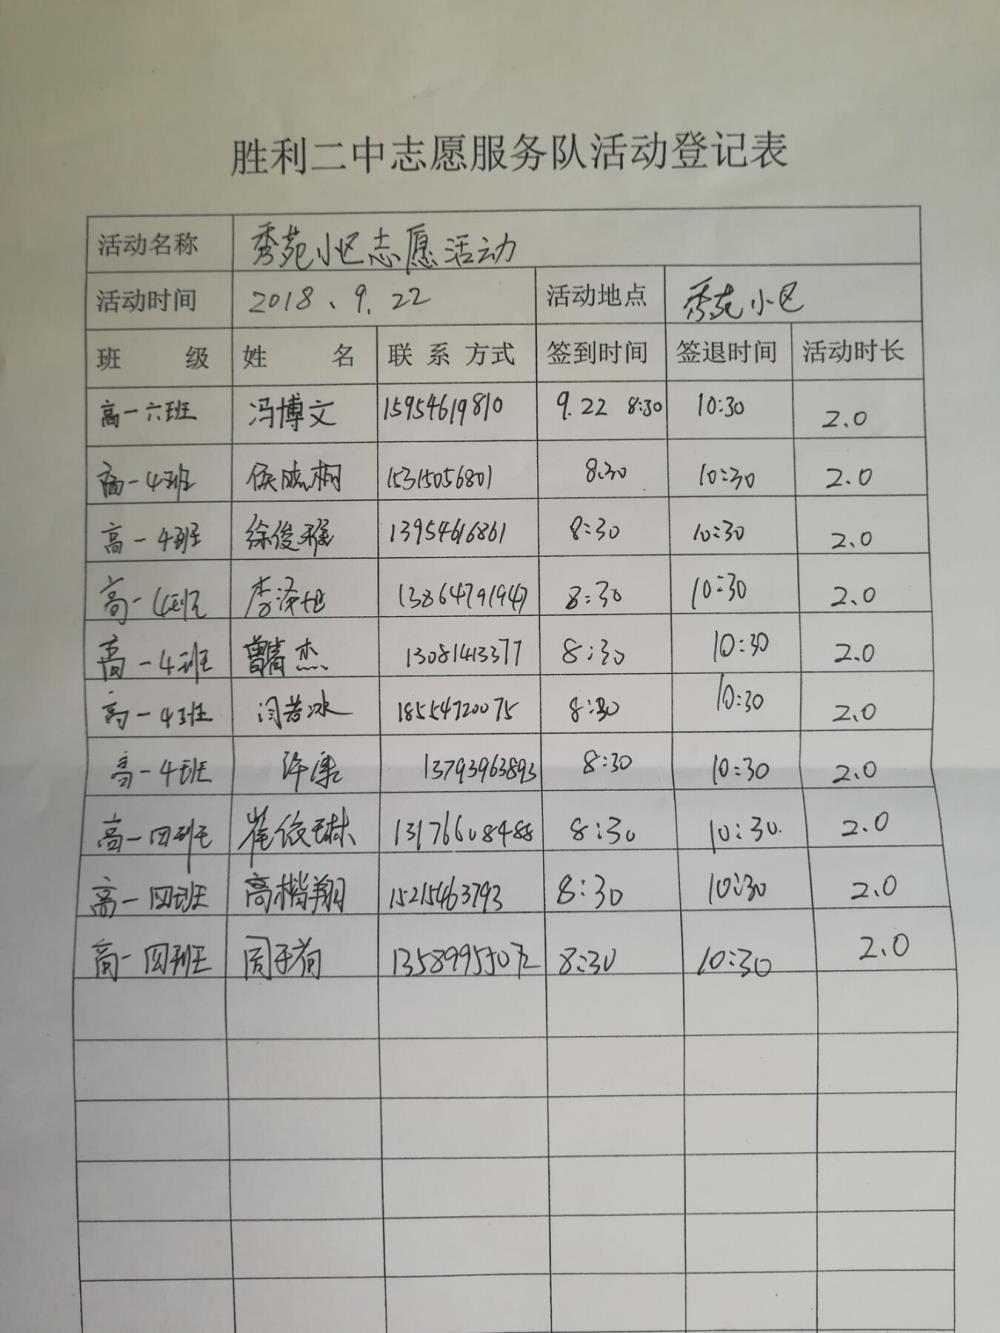 胜利二中志愿服务队活动登记表
活动名称 秀苑小区志愿活动
活动时间 2018、9.22 活动地点 秀苑小区
班 级 姓 名 联系方式 签到时间 签退时间 活动时长
高一六班 冯博文 15954619810 9.22 8:30 10:30 2.0
高一4班 15315056801 8:30 10:30 2.0
高一4班 徐俊雅 13954616861 8:30 10:30 2.0
高一4班 李泽旭 13864791947 8:30 10:30 2.0
高一4班 曹青杰 13081413377 8:30 10:30 2.0
高一4班 闫若冰 18554720075 8:30 10:30 2.0
高一4班 许康 13793963893 8:30 10:30 2.0
高一四班 崔俊琳 13176608488 8:30 10:30. 2.0
高一四班 高楷翔 15215463793 8:30 10:30 2.0
高一四班 周子荀 13589955072 8:30 10:30 2.0